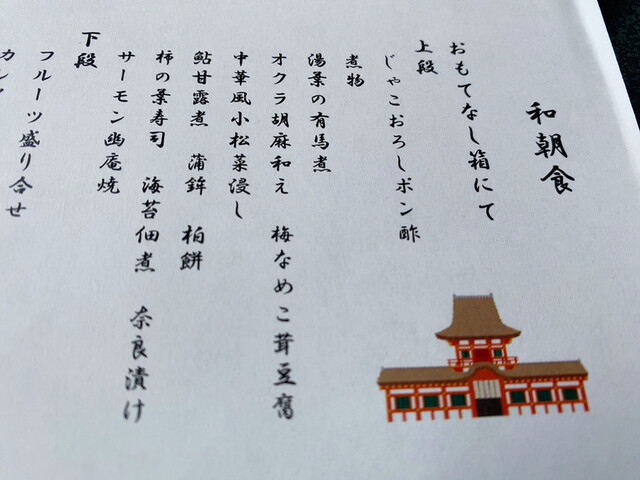 和朝食
おもてなし箱にて
上段
じゃこおろしポン酢
煮物
湯葉の有馬煮
オクラ胡麻和え　梅なめこ茸豆腐
中華風小松菜浸し
鮎甘露煮　蒲鉾　柏餅
柿の葉寿司　海苔佃煮　奈良漬け
サーモン幽庵焼
下段
フルーツ盛り合せ